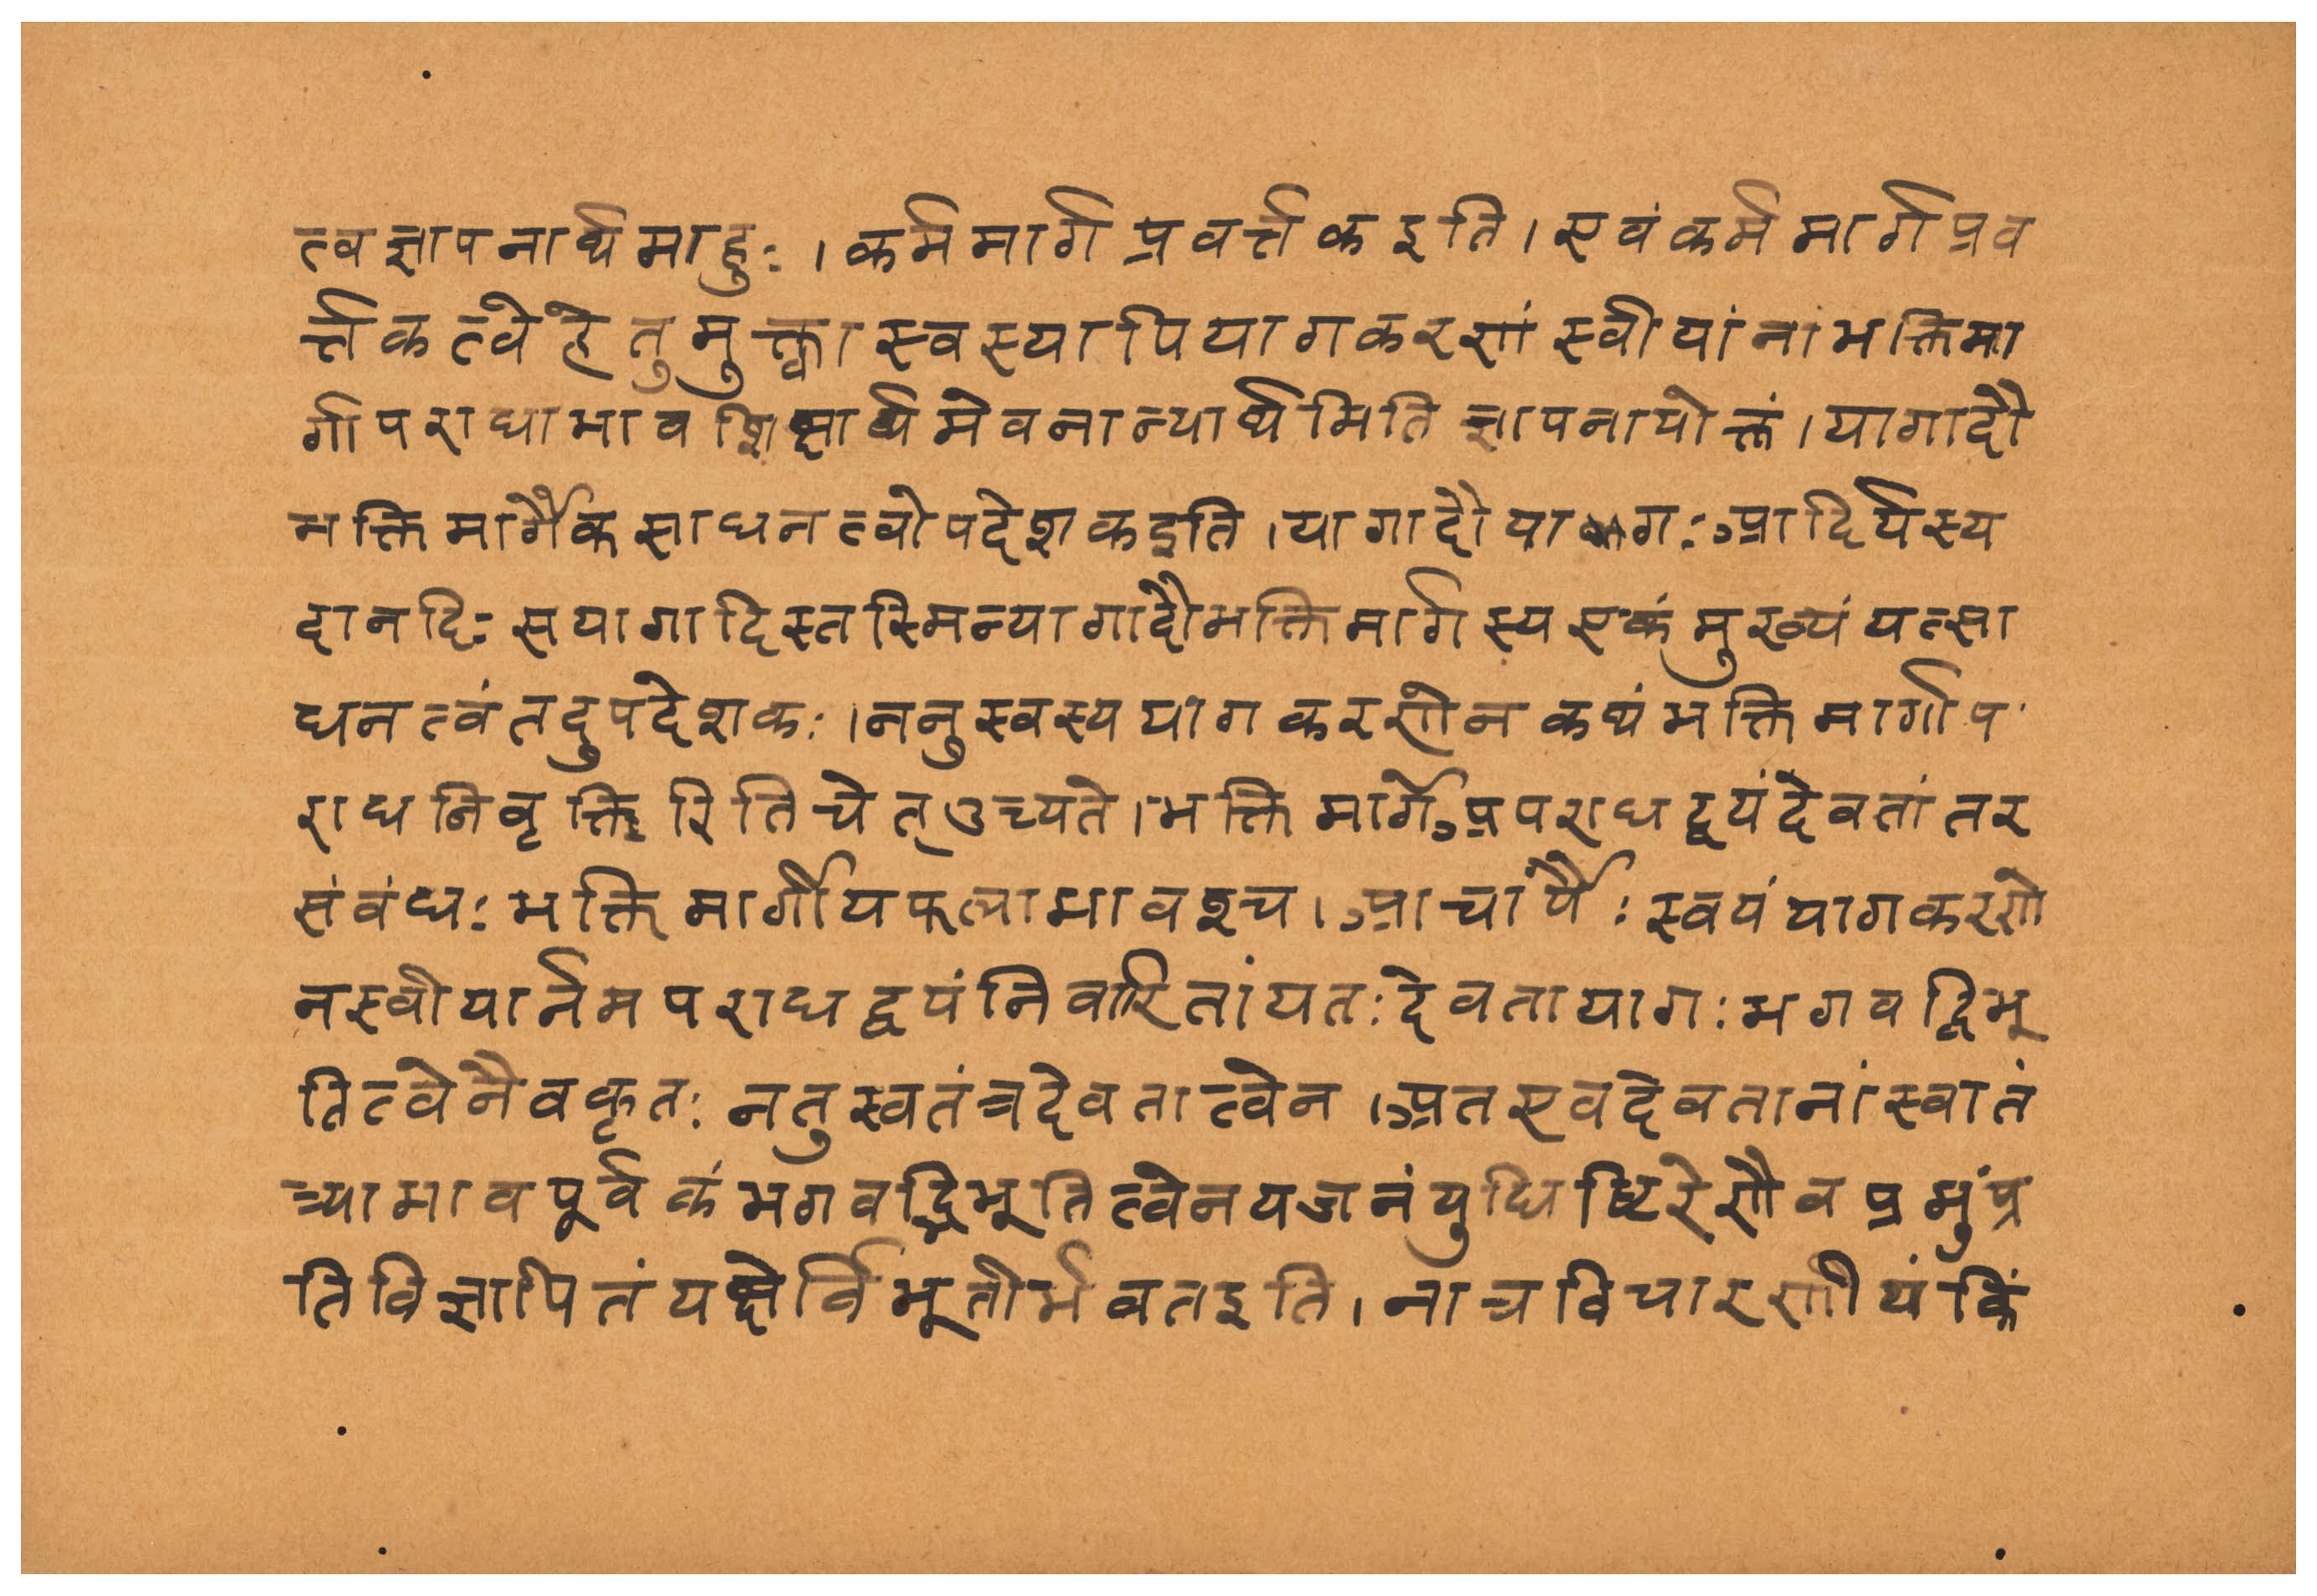 त्वज्ञापनार्थमाहुः।कर्ममार्गप्रवर्त्तकइति।एवंकर्ममार्गप्रव
र्त्तकत्वेहेतुमुक्त्वास्वस्यापियागकरणंस्वीयांनांभक्तिमा
र्गापराधाभावशिक्षार्थमेवनान्यार्थमितिज्ञापनायोक्तं।यागादौ
भक्तिमार्गैकसाधनत्वोपदेशकइति।यागादौयागःआदिर्यस्य
दानदिःसयागादिस्तस्मिन्यागादौभक्तिमार्गस्यएकंमुख्यंयत्सा
धनत्वंतदुपदेशकः।ननुस्वस्ययागकरणेनकथंभक्तिमार्गाप
राधनिवृक्तिरितिचेत्उच्यते।भक्तिमार्गेअपराधद्वयंदेवतांतर
संवंधःभक्तिमार्गीयफलाभावश्च।आचार्यैःस्वयंयागकरणे
नस्वीयार्नमपराधद्वयंनिवारितांयतःदेवतायागःभगवद्विभू
तित्वेनैवकृतःनतुस्वतंत्रदेवतात्वेन।अतएवदेवतानांस्वातं
त्र्याभावपूर्वकंभगवद्विभूतित्वेनयजनंयुधिष्ठिरेणैवप्रभुंप्र
तिविज्ञापितंयक्षेर्विभूतीर्भवतइति।नात्रविचारणीयंकिं